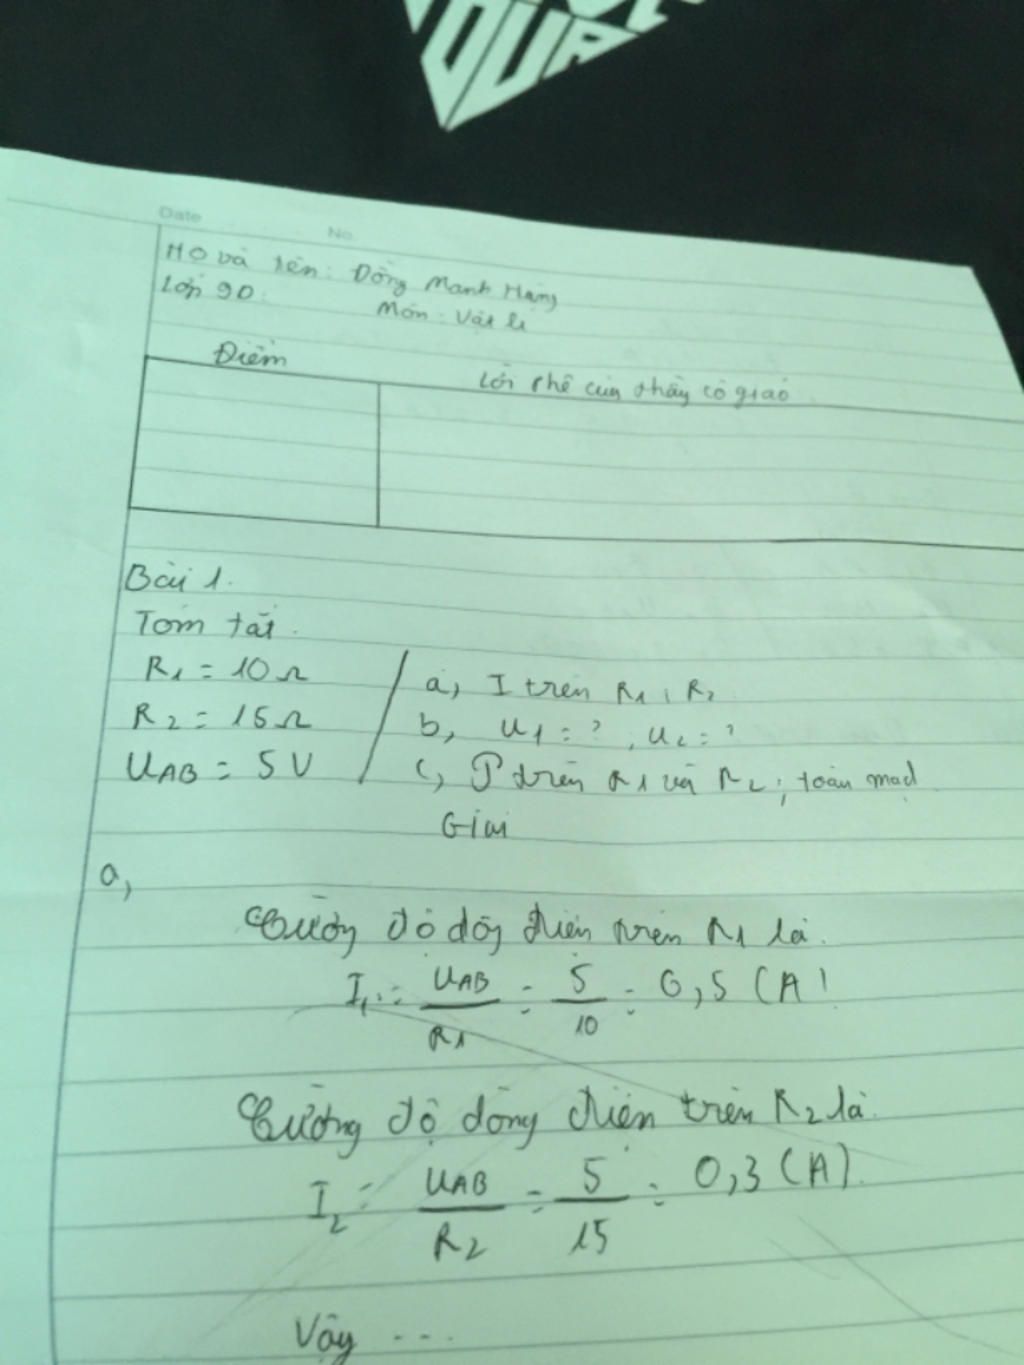 QUA
Date
No.
Họ và tên: Đồng Mạnh Hạng
Lớp 9D.
Môn: Vật lí
Điểm
Lời phê của thầy cô giáo
Bài 1.
Tóm tắt.
R1 = 10Ω
R2 = 15Ω
UAB = 5V
a, I trên R1, R2
b, U1 = ?, U2 = ?
c, P trên R1 và R2; toàn mạch
Giải
a,
Cường độ dòng điện trên R1 là.
I1 = UAB / R1 = 5 / 10 = 0,5 (A)
Cường độ dòng điện trên R2 là.
I2 = UAB / R2 = 5 / 15 = 0,3 (A).
Vậy ...